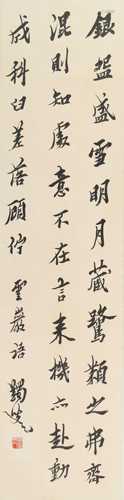 銀盌盛雪明月藏鷺類之弗齊
混則知處意不在言來機亦赴動
成科臼差落顧佇 雲巖語